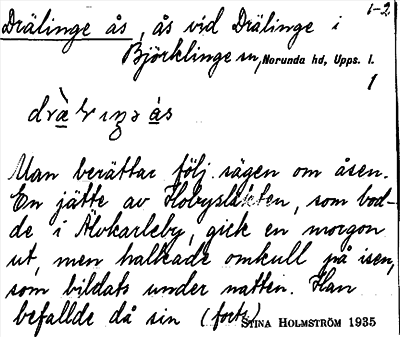 1-2
Drälinge ås, ås vid Drälinge i
Björklinge sn, Norunda hd, Upps. l.
1
Man berättar följ. sägen om åsen.
En jätte av Hobysläkten, som bod-
de i Älvkarleby, gick en morgon
ut, men halkade omkull på isen,
som bildats under natten. Han
befallde då sin (forts)
STINA HOLMSTRÖM 1935